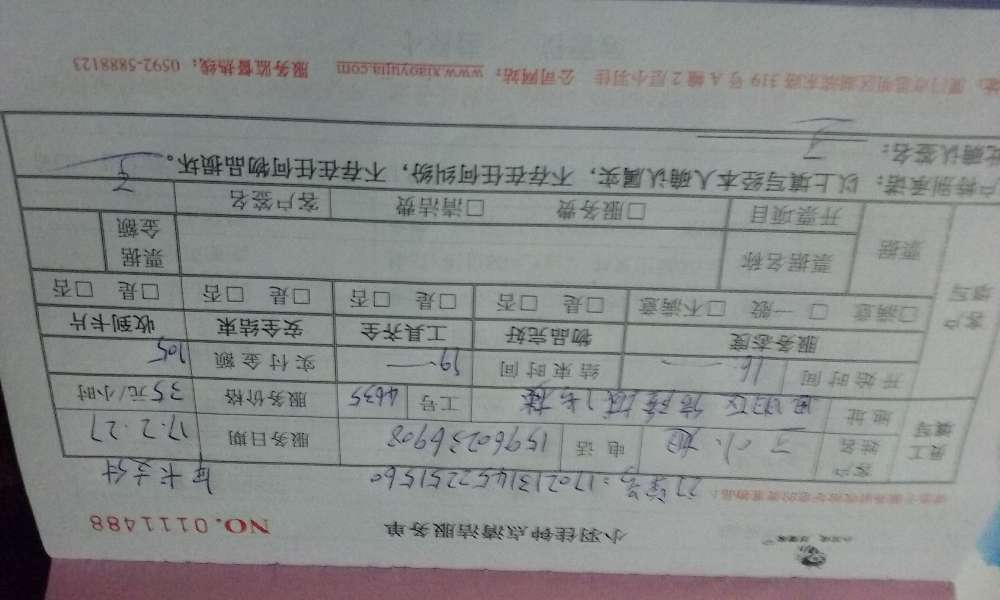 小羽佳钟点清洁服务单
NO. 0111488
订单号：1702131452251560
客户姓名 丁小姐 电话 15960236908 服务日期 17.2.27
地址 工号 4635 服务价格 35元/小时
开始时间 16 结束时间 19 实付金额 105
服务态度 物品完好 工具齐全 安全结束 收到卡片
□满意 □一般 □不满意 □是 □否 □是 □否 □是 □否 □是 □否
员工填写
客户填写
票据 票据名称 票据金额
开票项目 □服务费 □清洁费 客户签名 丁
户特别承诺：以上填写经本人确认属实，不存在任何纠纷，不存在任何物品损坏。
此确认签名： 丁
319号A幢2层小羽佳 公司网站：www.xiaoyujia.com 服务监督热线：0592-5888123